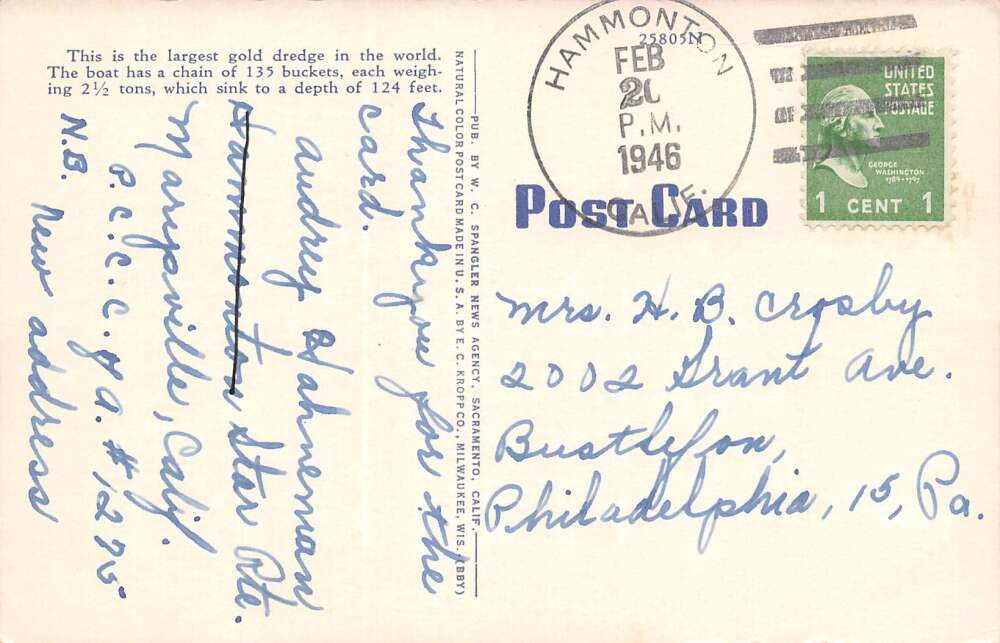 This is the largest gold dredge in the world.
The boat has a chain of 135 buckets, each weigh-
ing 2½ tons, which sink to a depth of 124 feet.
Thankyou for the
card.
Audrey Hahneman
Hammonton Star Rte.
Marysville, Calif.
P.C.C. of A. #1275
N.B. New address
PUB. BY W. C. SPANGLER NEWS AGENCY, SACRAMENTO, CALIF.
NATURAL COLOR POST CARD MADE IN U. S. A. BY E. C. KROPP CO., MILWAUKEE, WIS. (BBY)
25805N
HAMMONTON
FEB
20
P.M.
1946
CALIF.
UNITED
STATES
POSTAGE
GEORGE
WASHINGTON
1789-1797
1 CENT 1
POST CARD
Mrs. H. B. Crosby
2002 Grant Ave.
Bustleton,
Philadelphia, 15, Pa.